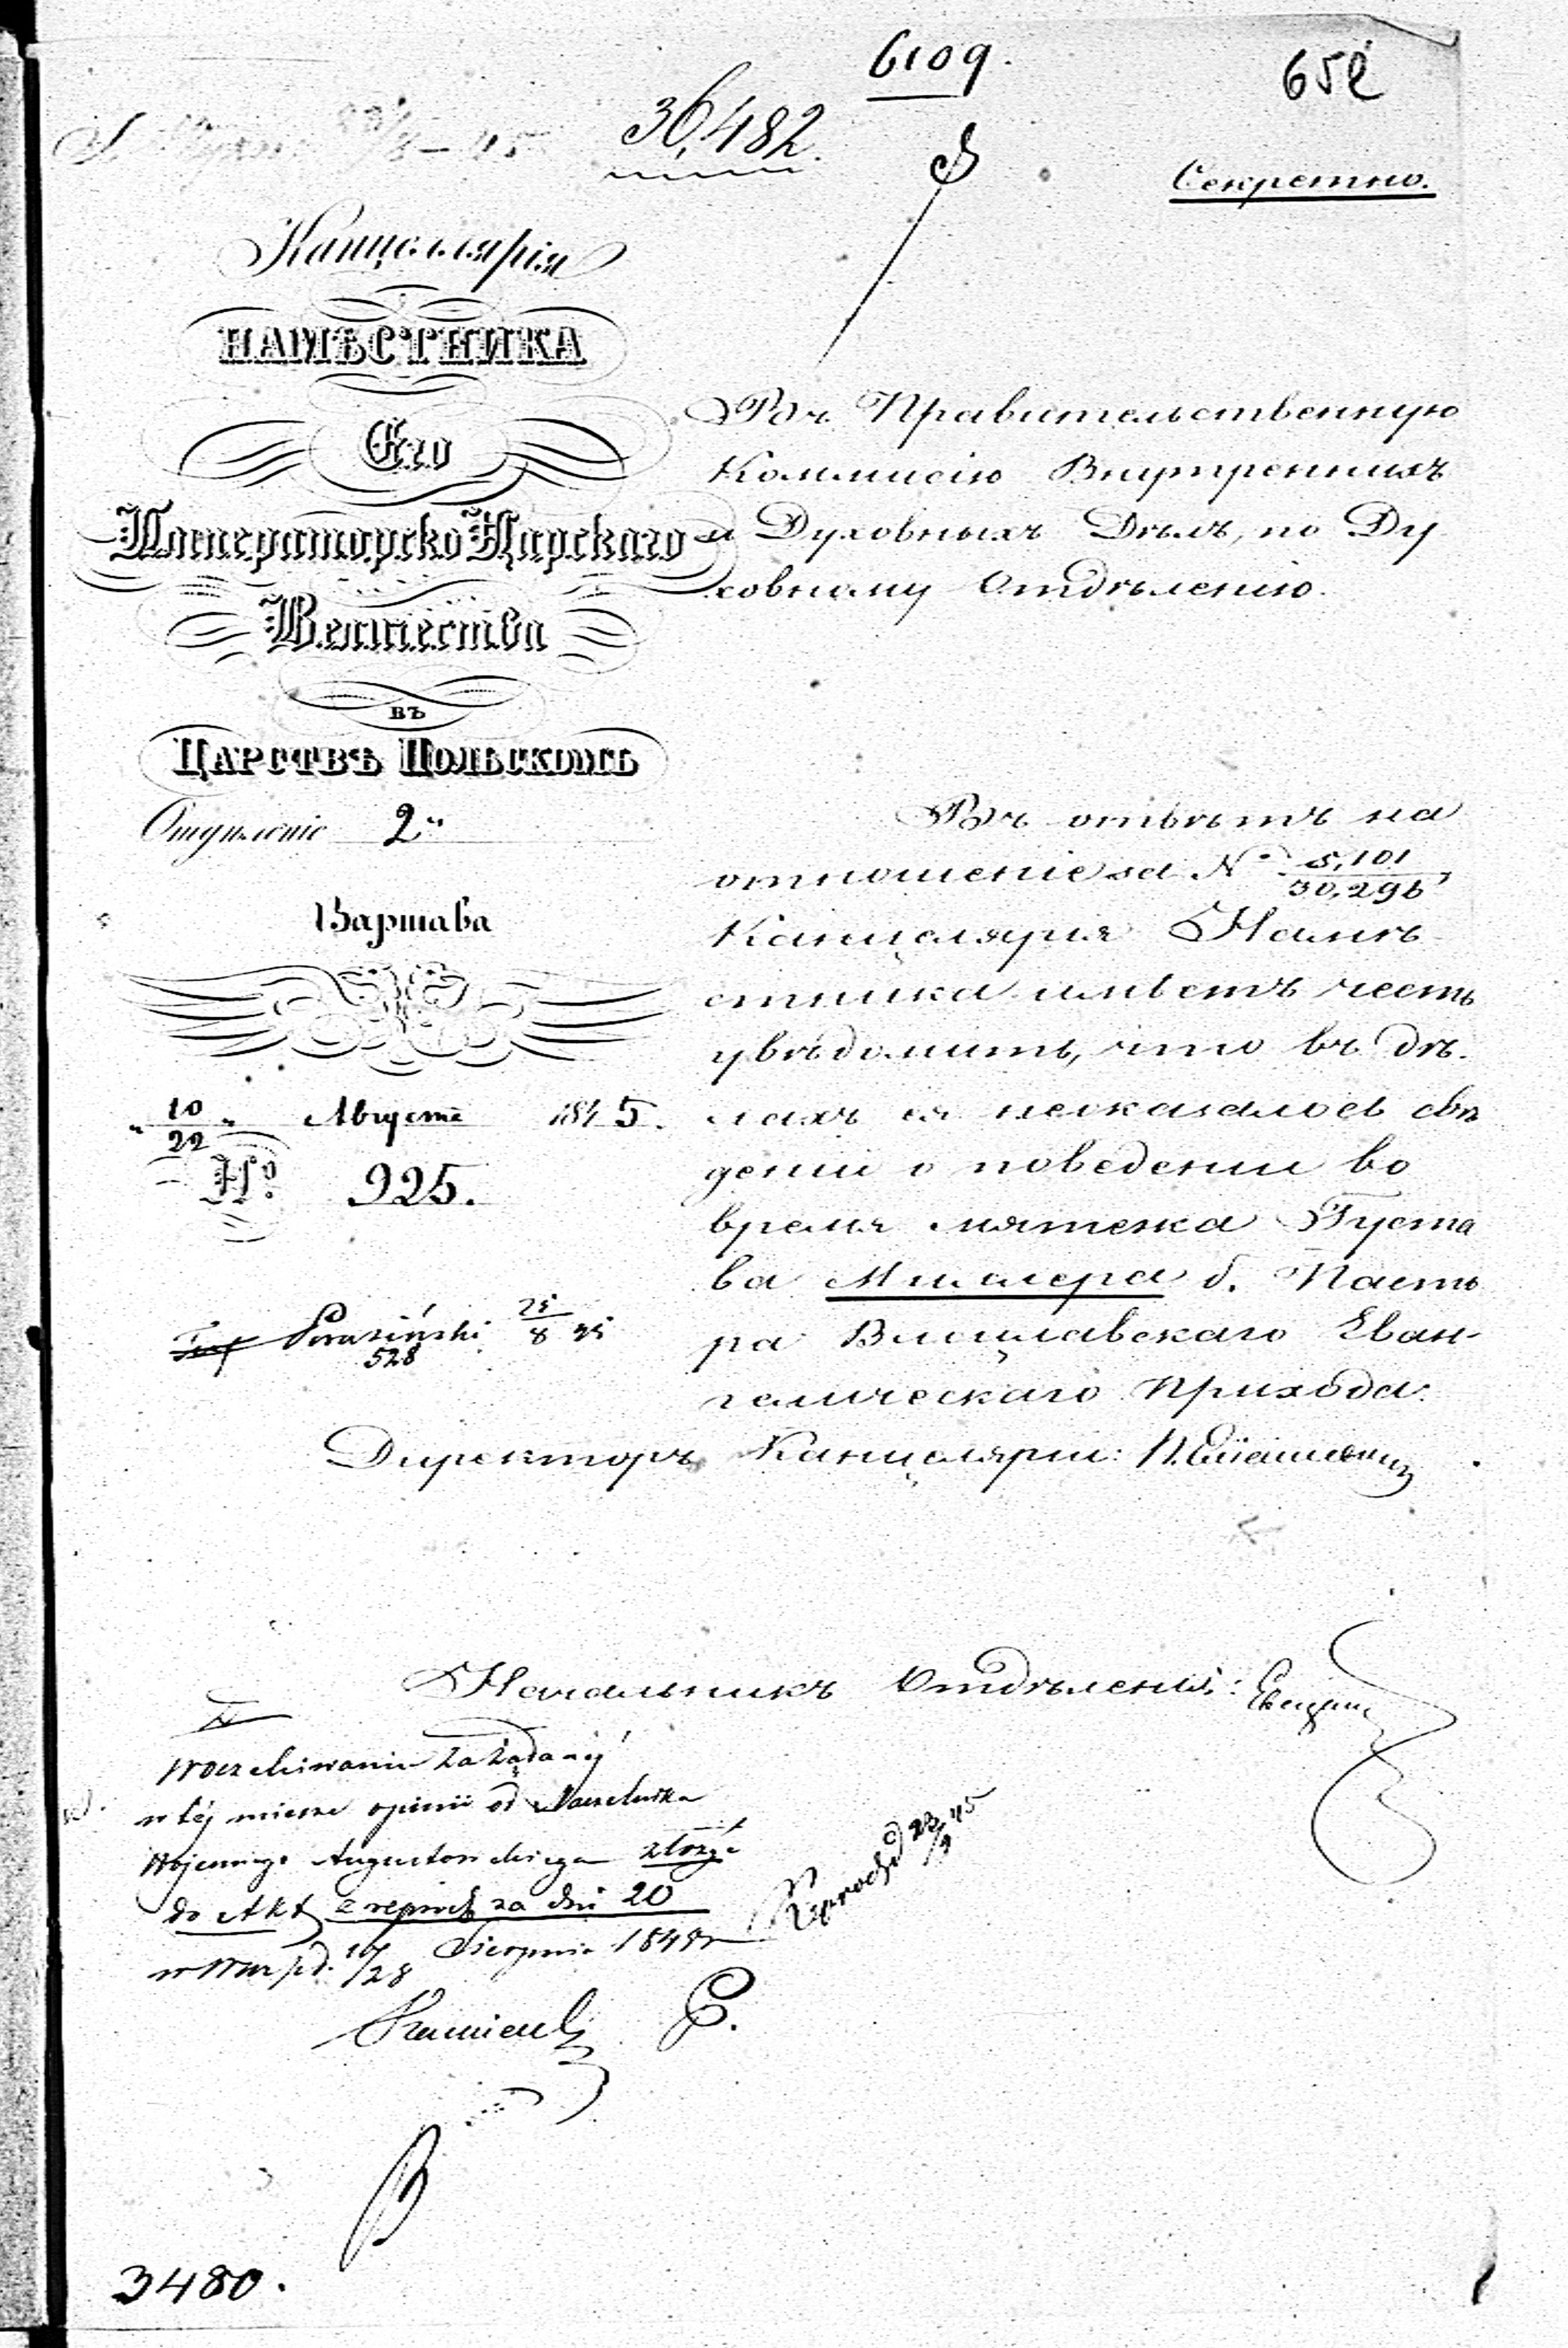 6109.
652
36,482.
Секретно.
Канцелярія
НАМѢСТНИКА
Его
Императорско Царскаго
Величества
въ
ЦАРСТВѢ ПОЛЬСКОМЪ
Отдѣленіе 2е
Варшава
" 10/22 " Августа 1845.
№ 925.
Въ Правительственную
Коммисію Внутреннихъ
и Духовныхъ Дѣлъ, по Ду
ховному Отдѣленію.
Въ отвѣтъ на
отношеніе за № 5,101/30,296,
Канцелярія Намѣ
стника имѣетъ честь
увѣдомить, что въ дѣ
лахъ ея неоказалось свѣ
деніи о поведеніи во
время мятежа Густа
ва Миллера б. Пасто
ра Влоцлавскаго Еван-
гелическаго Прихода.
Директоръ Канцеляріи:
528
25/8 45
Начальникъ Отдѣленія:
W oczekiwaniu zażądanéj
w téj mierze opinii od Naczelnika
Wojennego Augustowskiego złożyć
do Akt z reprod. za dni 20
w War. d. 16/28 Sierpnia 1845 r
3480.